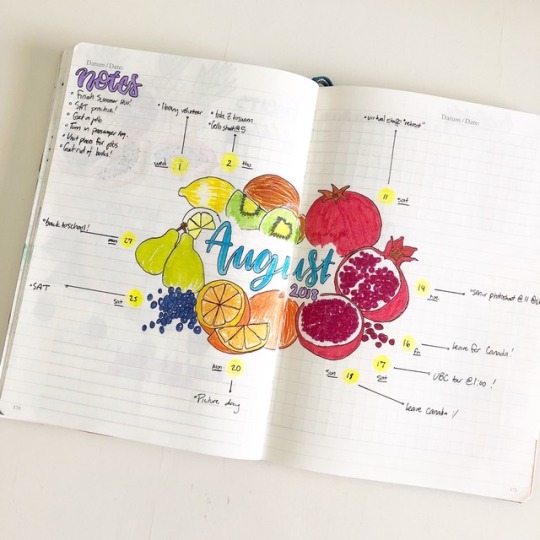 Datum / Date:
Notes
• Finish Summer HW!
• SAT practice!
• Get a job
• Turn in passenger log.
• Visit places for jobs
• Get rid of books!
• library volunteer
wed 1
• Cello start @ 5
2 thu
Datum / Date:
11 sat
• back to school!
mon 27
• SAT
sat 25
August
2018
14 tue
16
leave for Canada!
17
UBC tour @ 1:00!
sun 18
leave Canada :/
mon 20
• Picture day